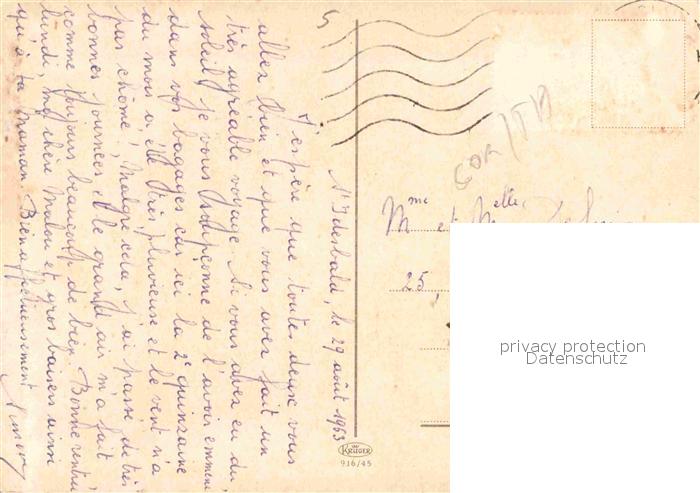 St Idesbald, le 29 août 1963
J'espère que toutes deux vous
allez bien et que vous avez fait un
très agréable voyage. Si vous avez eu du
soleil, je vous soupçonne de l'avoir emmené
dans vos bagages car ici la 2e quinzaine
du mois a été très pluvieuse et le vent n'a
pas chômé; Malgré cela, j'ai passé de très
bonnes journées et le grand air m'a fait
comme toujours beaucoup de bien. Bonne rentrée
lundi, ma chère Malou et gros baisers ainsi
qu'à ta maman. Bien affectueusement
Mme et Melle
25,
KRÜGER
916/45
privacy protection
Datenschutz